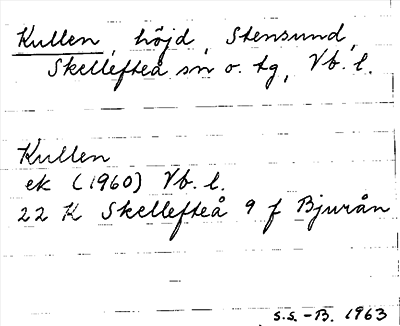 Kullen, höjd, Stensund,
Skellefteå sn o. tg, Vb. l.
Kullen
ek (1960) Vb. l.
22 K Skellefteå 9 f Bjurån
S.S. - B. 1963